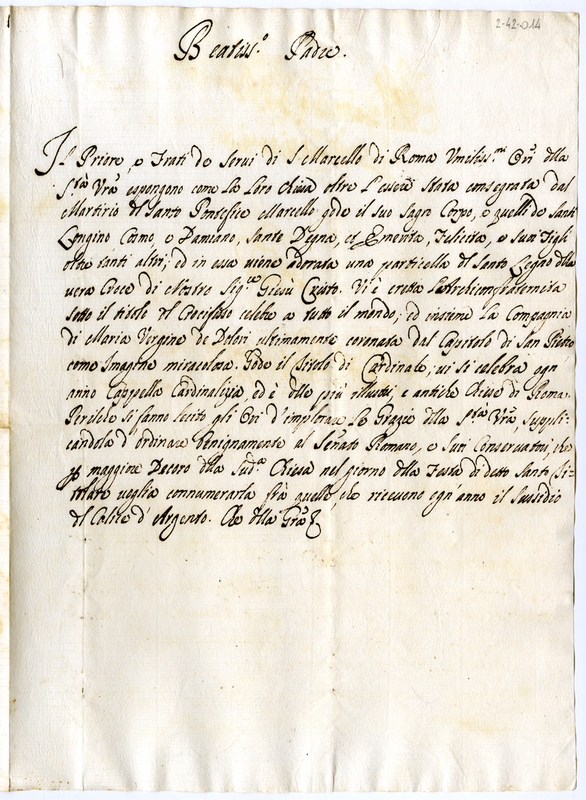 2-42-014
Beatiss.o Padre.
Il Priore, e Frati de Servi di S Marcello di Roma Umiliss.mi Ori della
S.tà Vra espongono come La Loro Chiesa oltre L'essere stata consegrata dal
Martirio del Santo Pontefice Marcello gode il suo Sagro Corpo, e quelli de Santi
Longino Cosmo, e Damiano, Sante Degna, et Emerita, Felicita, e suoi Figli
oltre tanti altri; ed in essa viene adorata una particella del Santo Legno della
vera Croce di Nostro Sig.re Giesù Cristo. Vi è eretta L'Archiconfraternita
sotto il titolo del Crocifisso celebre a tutto il mondo; ed insieme La Compagnia
di Maria Vergine de Dolori ultimamente coronata dal Capitolo di San Pietro
come Imagine miracolosa. Gode il Titolo di Cardinale; vi si celebra ogn
anno Cappella Cardinalizia, ed è delle più illustri, e antiche Chiese di Roma.
Perloche si fanno lecito gli Ori d'implorare La Grazia della S.tà Vra, suppli-
candola d'ordinare benignamente al Senato Romano, e suoi Conservatori, che
per maggiore Decoro della Sud.a Chiesa nel giorno della Festa di detto Santo Ti-
tolare voglia connumerarla frà quelle, che ricevono ogn'anno il Sussidio
del Calice d'Argento. Che della Gra